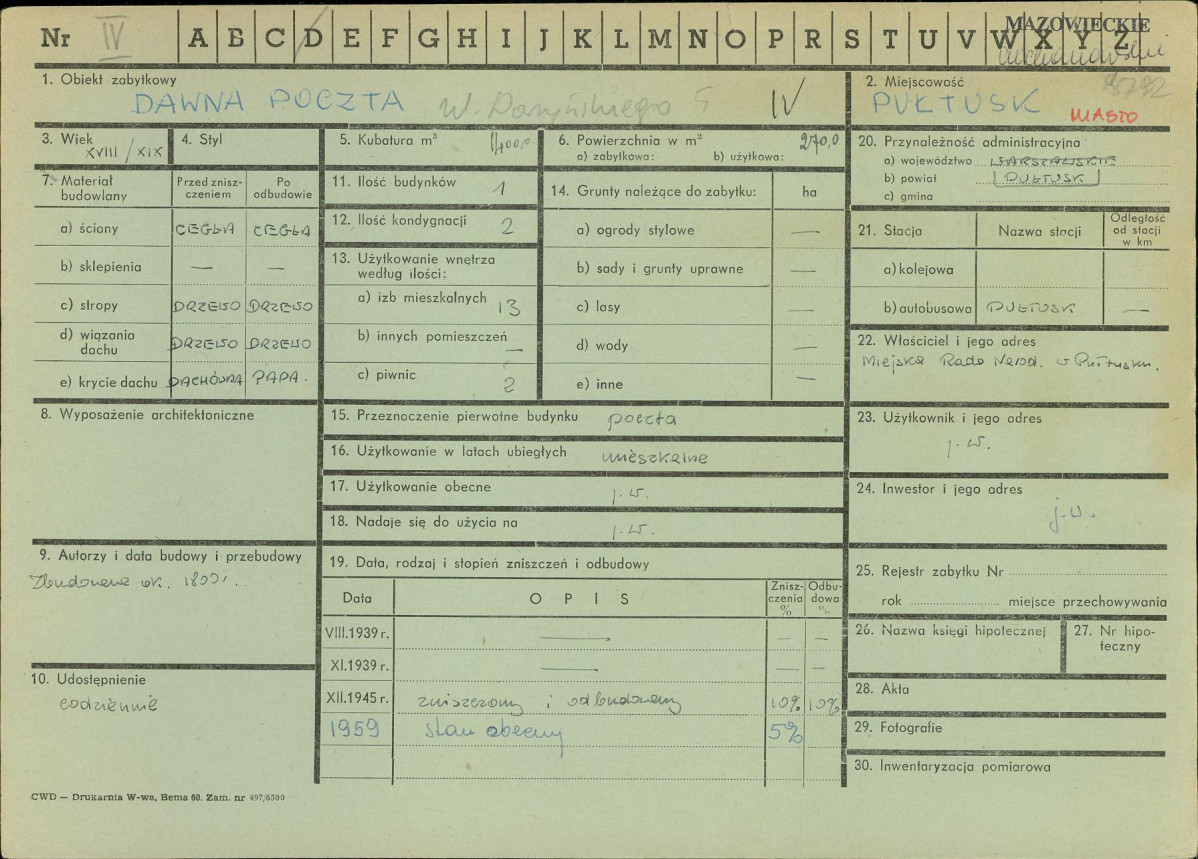 MAZOWIECKIE
Nr IV A B C D E F G H I J K L M N O P R S T U V W X Y Z
1. Obiekt zabytkowy
DAWNA POCZTA ul. Daszyńskiego 5 IV
2. Miejscowość
PUŁTUSK MIASTO
3. Wiek
XVIII/XIX
4. Styl
5. Kubatura m³ 1400,0
6. Powierzchnia w m² 270,0
a) zabytkowa: b) użytkowa:
7. Materiał budowlany
Przed zniszczeniem
Po odbudowie
a) ściany CEGŁA CEGŁA
b) sklepienia — —
c) stropy DRZEWO DRZEWO
d) wiązania dachu DRZEWO DRZEWO
e) krycie dachu DACHÓWKA PAPA.
8. Wyposażenie architektoniczne
9. Autorzy i data budowy i przebudowy
Zbudowana ok. 1800 r.
10. Udostępnienie
codziennie
11. Ilość budynków 1
12. Ilość kondygnacji 2
13. Użytkowanie wnętrza według ilości:
a) izb mieszkalnych 13
b) innych pomieszczeń —
c) piwnic 2
14. Grunty należące do zabytku: ha
a) ogrody stylowe —
b) sady i grunty uprawne —
c) lasy —
d) wody —
e) inne —
15. Przeznaczenie pierwotne budynku poczta
16. Użytkowanie w latach ubiegłych mieszkalne
17. Użytkowanie obecne j.w.
18. Nadaje się do użycia na j.w.
19. Data, rodzaj i stopień zniszczeń i odbudowy
Data OPIS Zniszczenia % Odbudowa %
VIII.1939 r. — — —
XI.1939 r. — — —
XII.1945 r. zniszczony i odbudowany 10% 10%
1959 stan obecny 5%
20. Przynależność administracyjna
a) województwo WARSZAWSKIE
b) powiat PUŁTUSK
c) gmina
21. Stacja Nazwa stacji Odległość od stacji w km
a) kolejowa
b) autobusowa PUŁTUSK —
22. Właściciel i jego adres
Miejska Rada Narod. w Pułtusku.
23. Użytkownik i jego adres
j.w.
24. Inwestor i jego adres
j.w.
25. Rejestr zabytku Nr
rok miejsce przechowywania
26. Nazwa księgi hipotecznej
27. Nr hipoteczny
28. Akta
29. Fotografie
30. Inwentaryzacja pomiarowa
CWD — Drukarnia W-wa, Bema 60. Zam. nr 497/6500